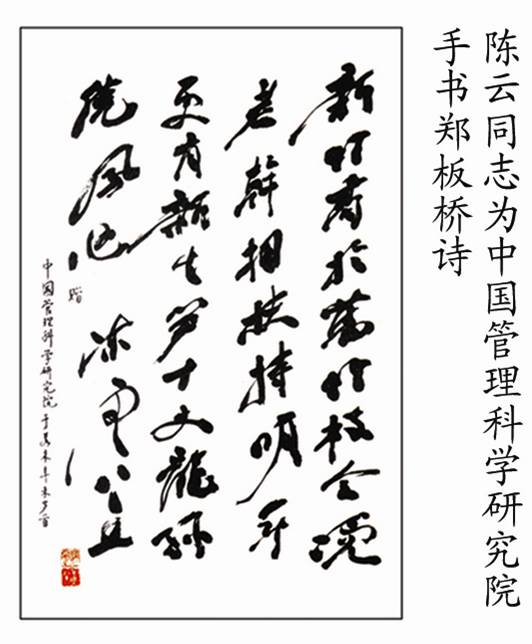 陈云同志为中国管理科学研究院
手书郑板桥诗
新竹高於舊竹枝全凭
老幹相扶持明年
更有新生笋十丈龍孫
繞鳳池 陈云 八五
中国管理科学研究院